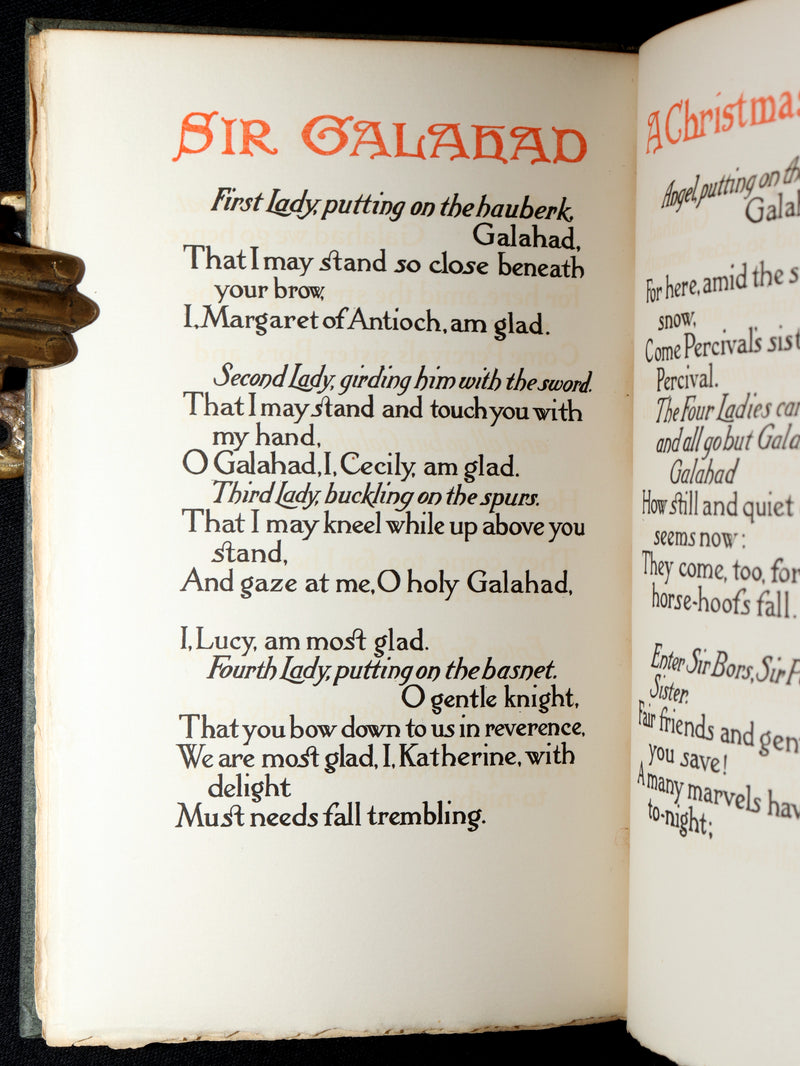 SIR GALAHAD
First Lady, putting on the hauberk,
Galahad,
That I may stand so close beneath
your brow,
I, Margaret of Antioch, am glad.
Second Lady, girding him with the sword.
That I may stand and touch you with
my hand,
O Galahad, I, Cecily, am glad.
Third Lady, buckling on the spurs.
That I may kneel while up above you
stand,
And gaze at me, O holy Galahad,
I, Lucy, am most glad.
Fourth Lady, putting on the basnet.
O gentle knight,
That you bow down to us in reverence,
We are most glad, I, Katherine, with
delight
Must needs fall trembling.
A Christmas
Angel, putting on th
Galah
For here, amid the s
snow,
Come Percival's sist
Percival.
The Four Ladies car
and all go but Gala
Galahad
How still and quiet
seems now:
They come, too, for
horse-hoofs fall.
Enter Sir Bors, Sir P
Sister.
Fair friends and gen
you save!
A many marvels hav
to-night;